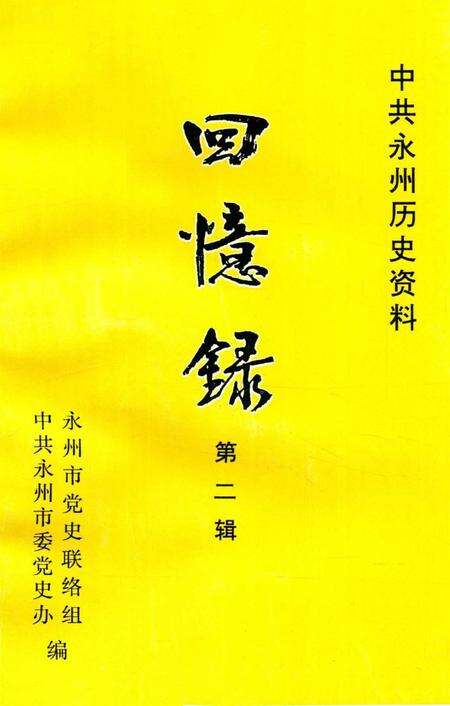 中共永州历史资料
回憶録
第二辑
永州市党史联络组
中共永州市委党史办
编